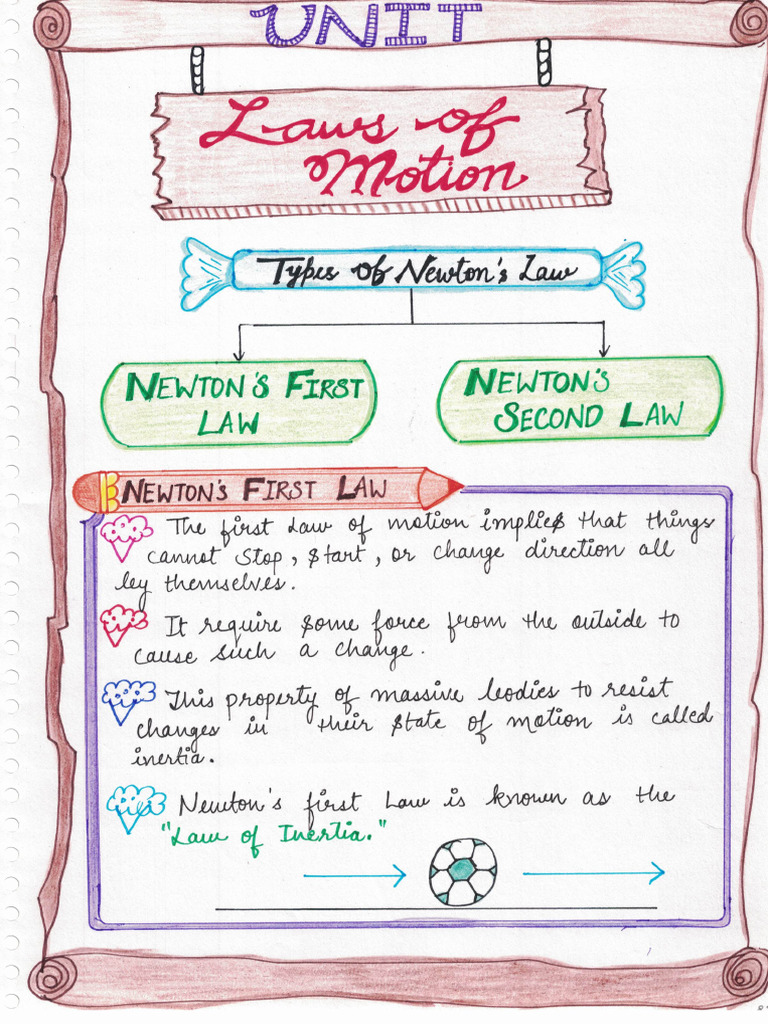 UNIT
Laws of
Motion
Types of Newton's Law
NEWTON'S FIRST
LAW
NEWTON'S
SECOND LAW
NEWTON'S FIRST LAW
The first Law of motion implies that things
cannot stop, start, or change direction all
by themselves.
It require some force from the outside to
cause such a change.
This property of massive bodies to resist
changes in their state of motion is called
inertia.
Newton's first Law is known as the
"Law of Inertia."